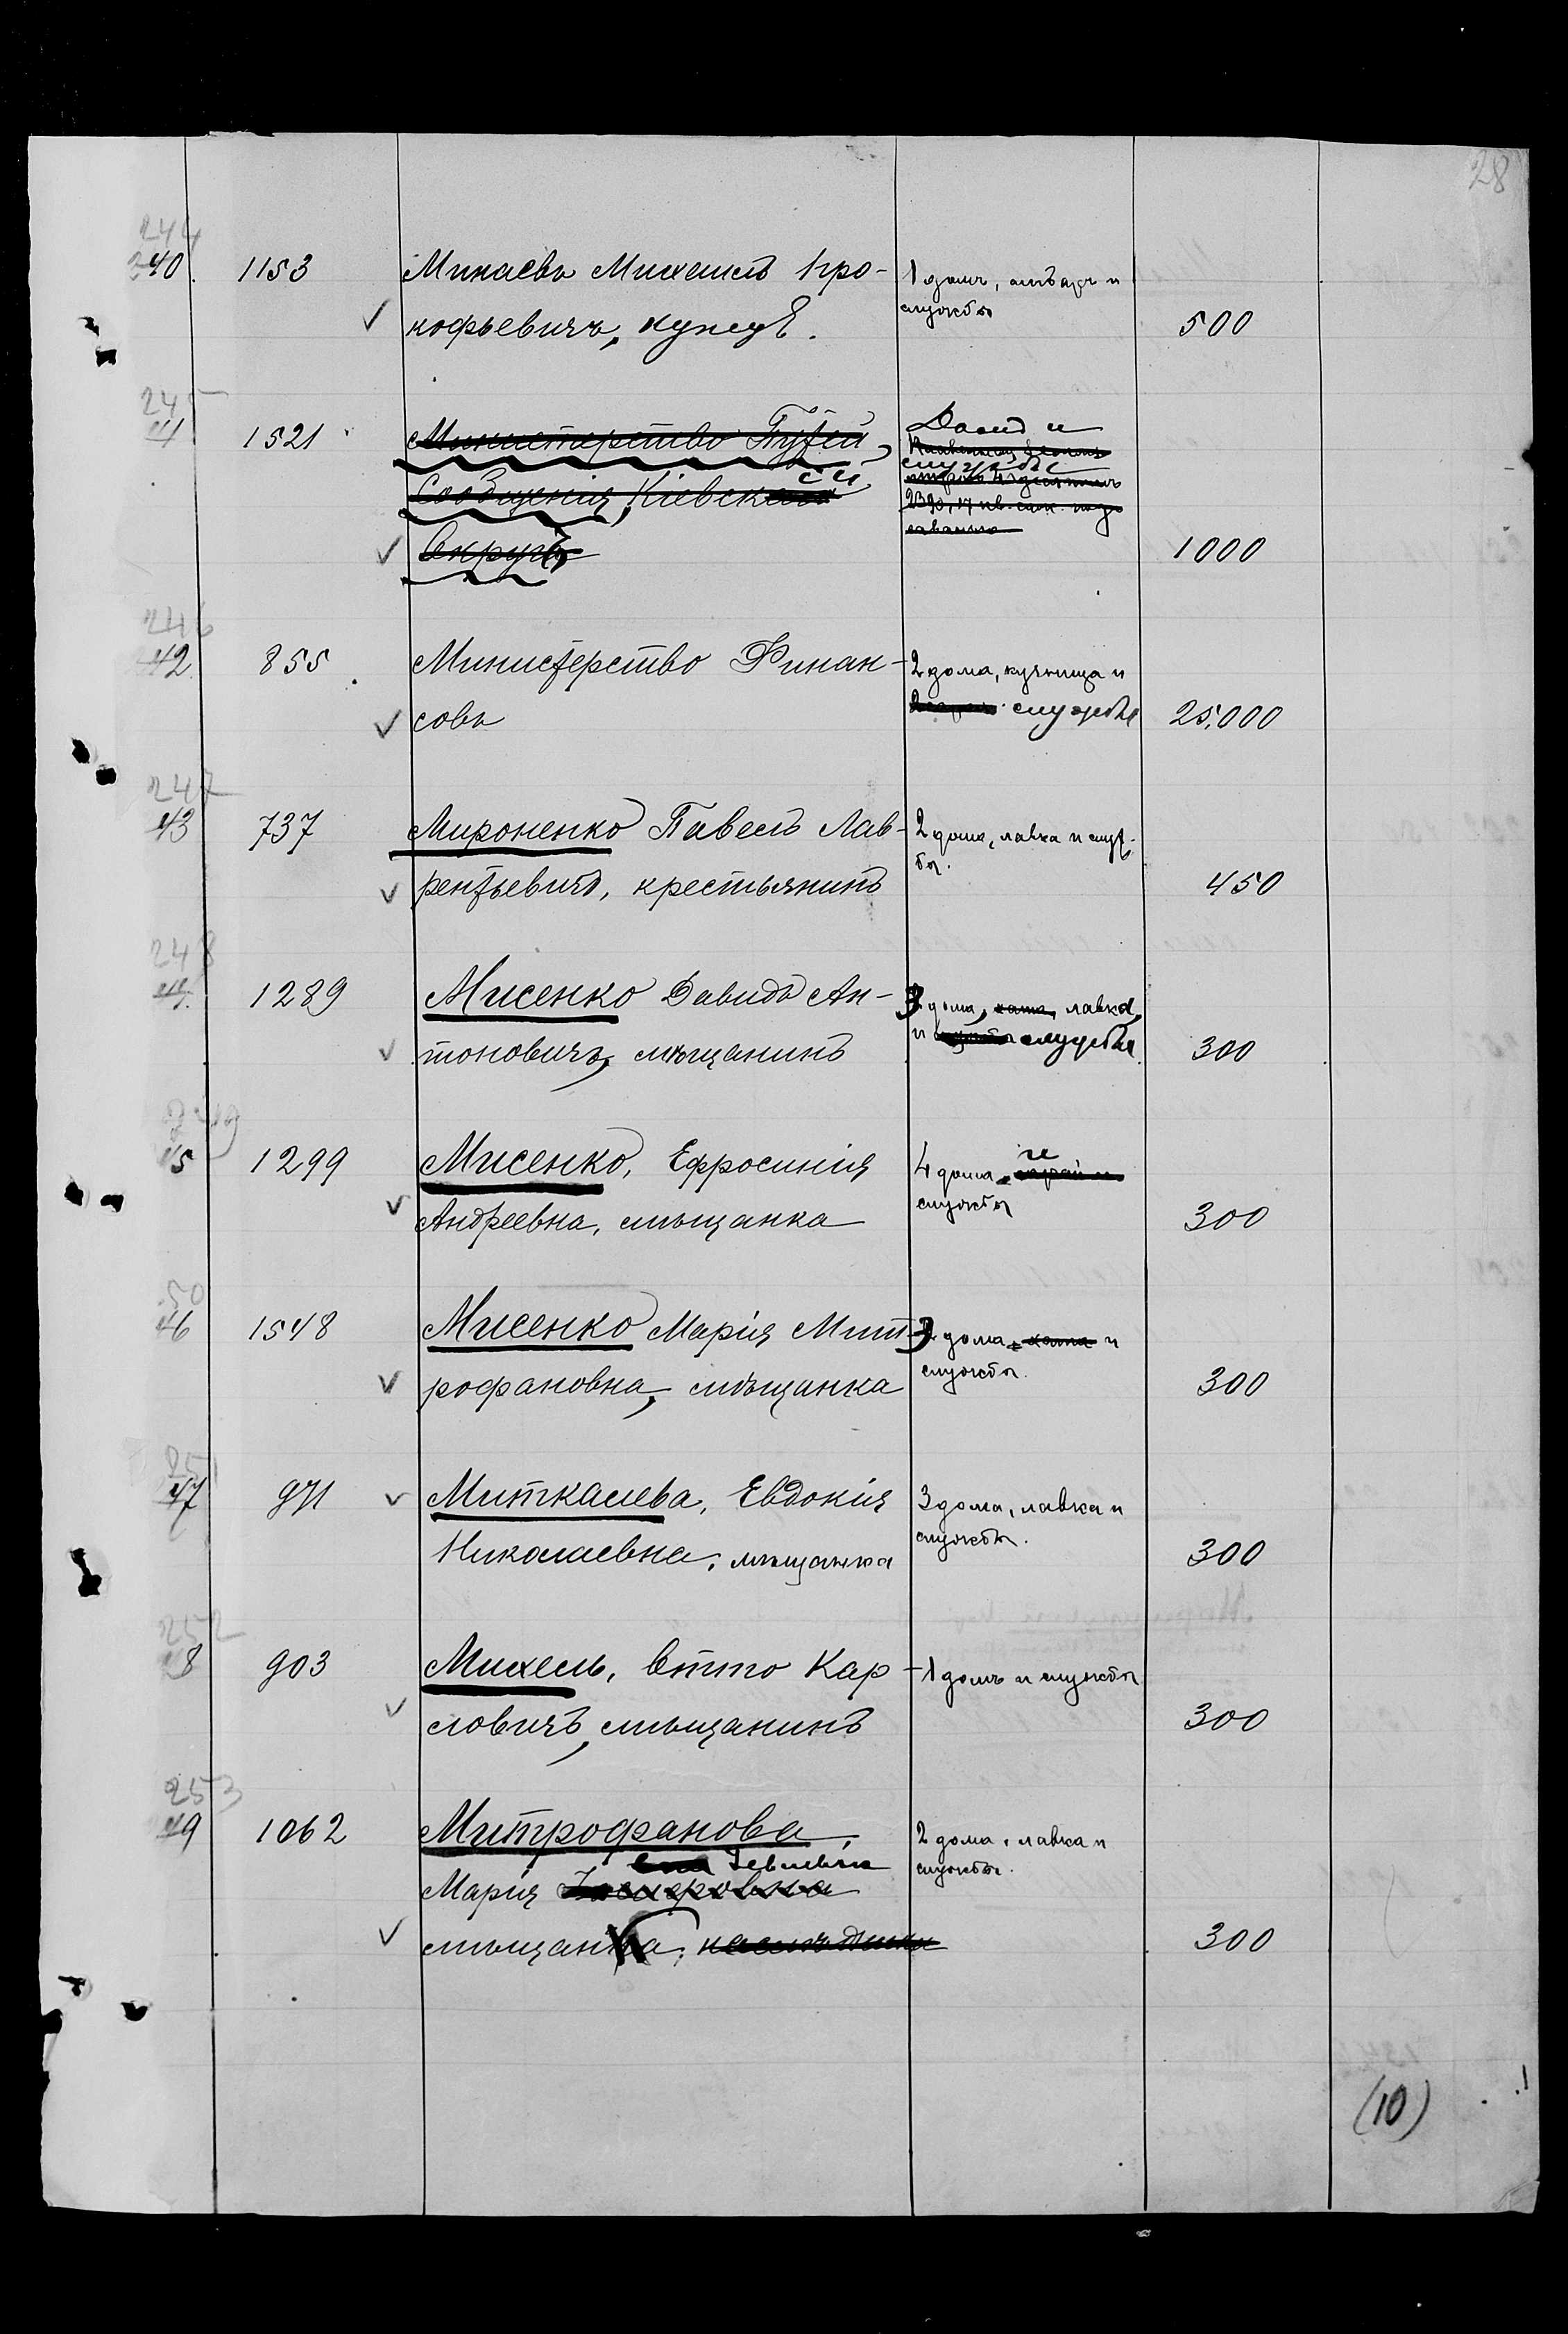 28
244
240. 1153 Минаевъ Михаилъ Про- 1 домъ, амбаръ и
службы
кофьевичъ, купецъ. 500
245
41 1521 Министерство Путей Домъ и
службы
Сообщенія, Кіевскій
2390,17 кв. саж. подъ
Округъ 1000
246
42 855 Министерство Финан- 2 дома, кузница и
совъ службы 25,000
247
43 737 Мироненко Павелъ Лав- 2 дома, лавка и служ-
бы.
рентьевичъ, крестьянинъ 450
248
44. 1289 Мисенко Давидъ Ан- 3 дома, хата, лавка,
и службы
тоновичъ, мѣщанинъ 300
249
45 1299 Мисенко, Ефросинія 4 дома и сарай и
службы
Андреевна, мѣщанка 300
250
46 1548 Мисенко Марія Мит- 3 дома, хата и
службы.
рофановна, мѣщанка 300
251
47 971 Миткалева, Евдокія 3 дома, лавка и
службы.
Николаевна, мѣщанка 300
252
48 903 Михель, Отто Кар- 1 домъ и службы
ловичъ, мѣщанинъ 300
253
49 1062 Митрофанова, 2 дома, лавка и
службы.
Марія
мѣщанка, наслѣдники 300
(10)